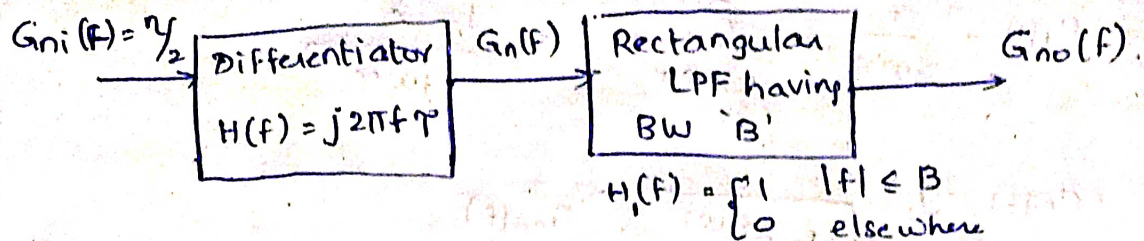 Gni(f) = η/2
Differentiator
H(f) = j2πfτ
Gn(f)
Rectangular
LPF having
BW 'B'
H₁(f) = {1 |f| ≤ B
0, elsewhere
Gno(f).